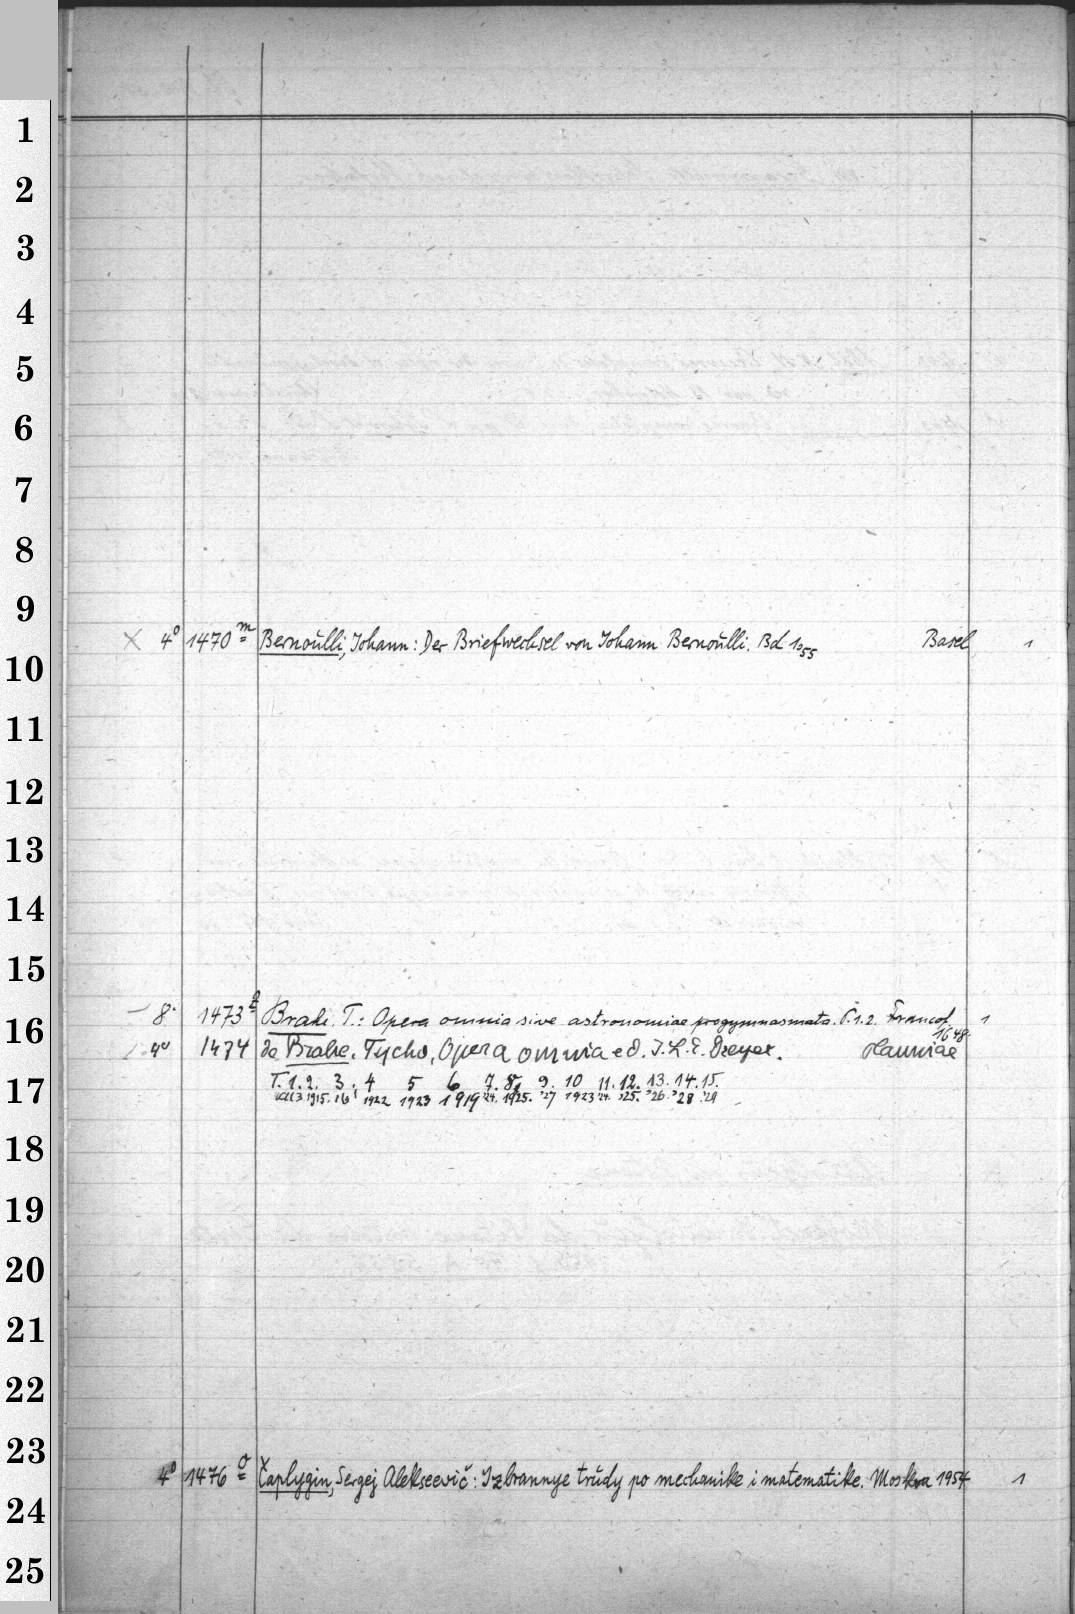 1
2
3
4
5
6
7
8
9
× 4° 1470 m Bernoulli, Johann: Der Briefwechsel von Johann Bernoulli. Bd 1. 55 Basel 1
10
11
12
13
14
15
– 8° 1473 Brahe, T.: Opera omnia sive astronomiae progymnasmata. P. 1.2. Francof. 1648 1
16
4° 1474 de Brahe, Tycho, Opera omnia ed. J. L. E. Dreyer. Hauniae
T. 1. 2. 3. 4 5 6 7. 8. 9. 10 11. 12. 13. 14. 15.
17
1913 1915. 16 1922 1923 1919 24. 1925. '27 1923 24. '25. '26. '28 '29
18
19
20
21
22
23
4° 1476 o Čaplygin, Sergej Alekseevič: Izbrannye trudy po mechanike i matematike. Moskva 1954 1
24
25